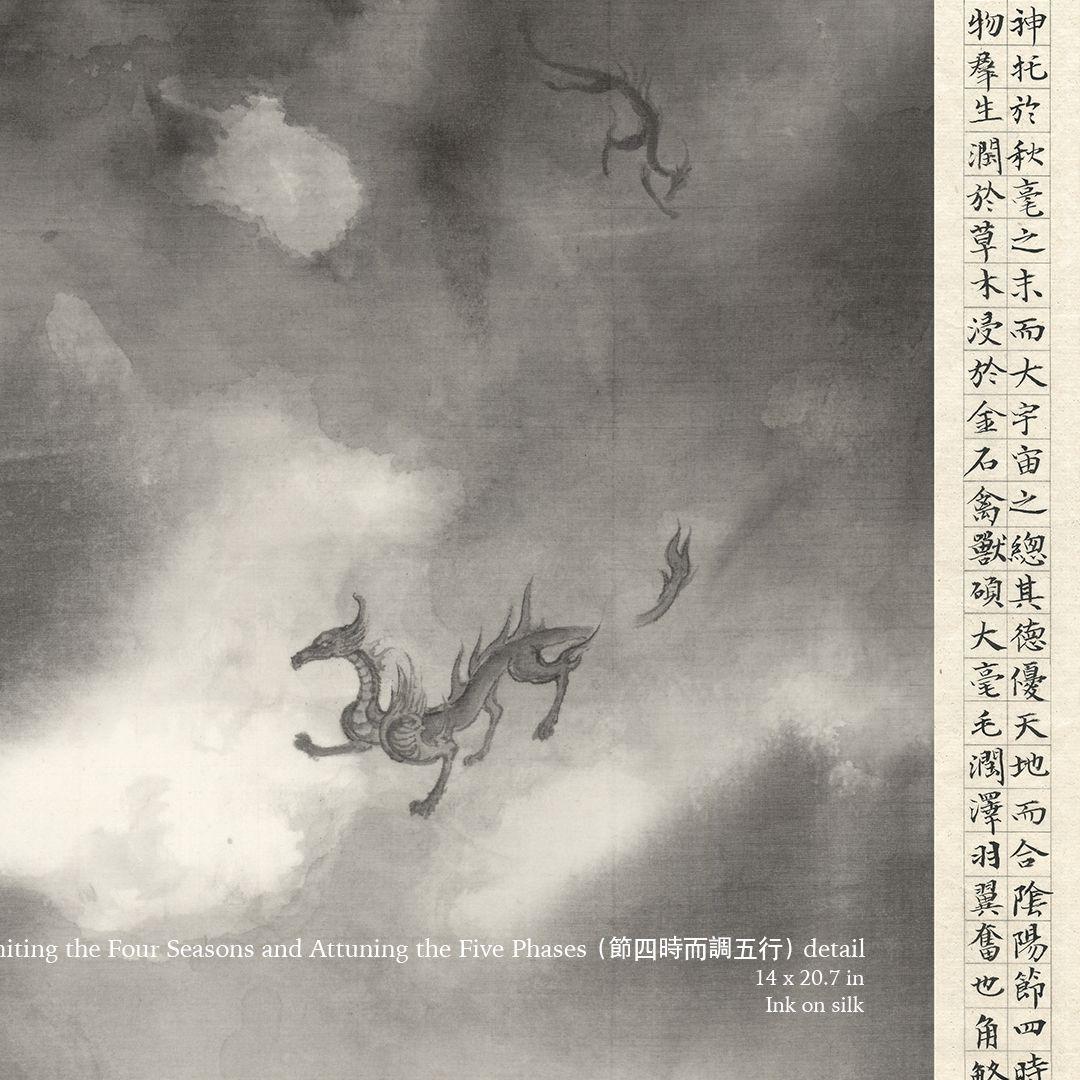 神托於秋毫之末而大宇宙之總其德優天地而合陰陽節四時
物羣生潤於草木浸於金石禽獸碩大毫毛潤澤羽翼奮也角
the Four Seasons and Attuning the Five Phases (節四時而調五行) detail
14 x 20.7 in
Ink on silk